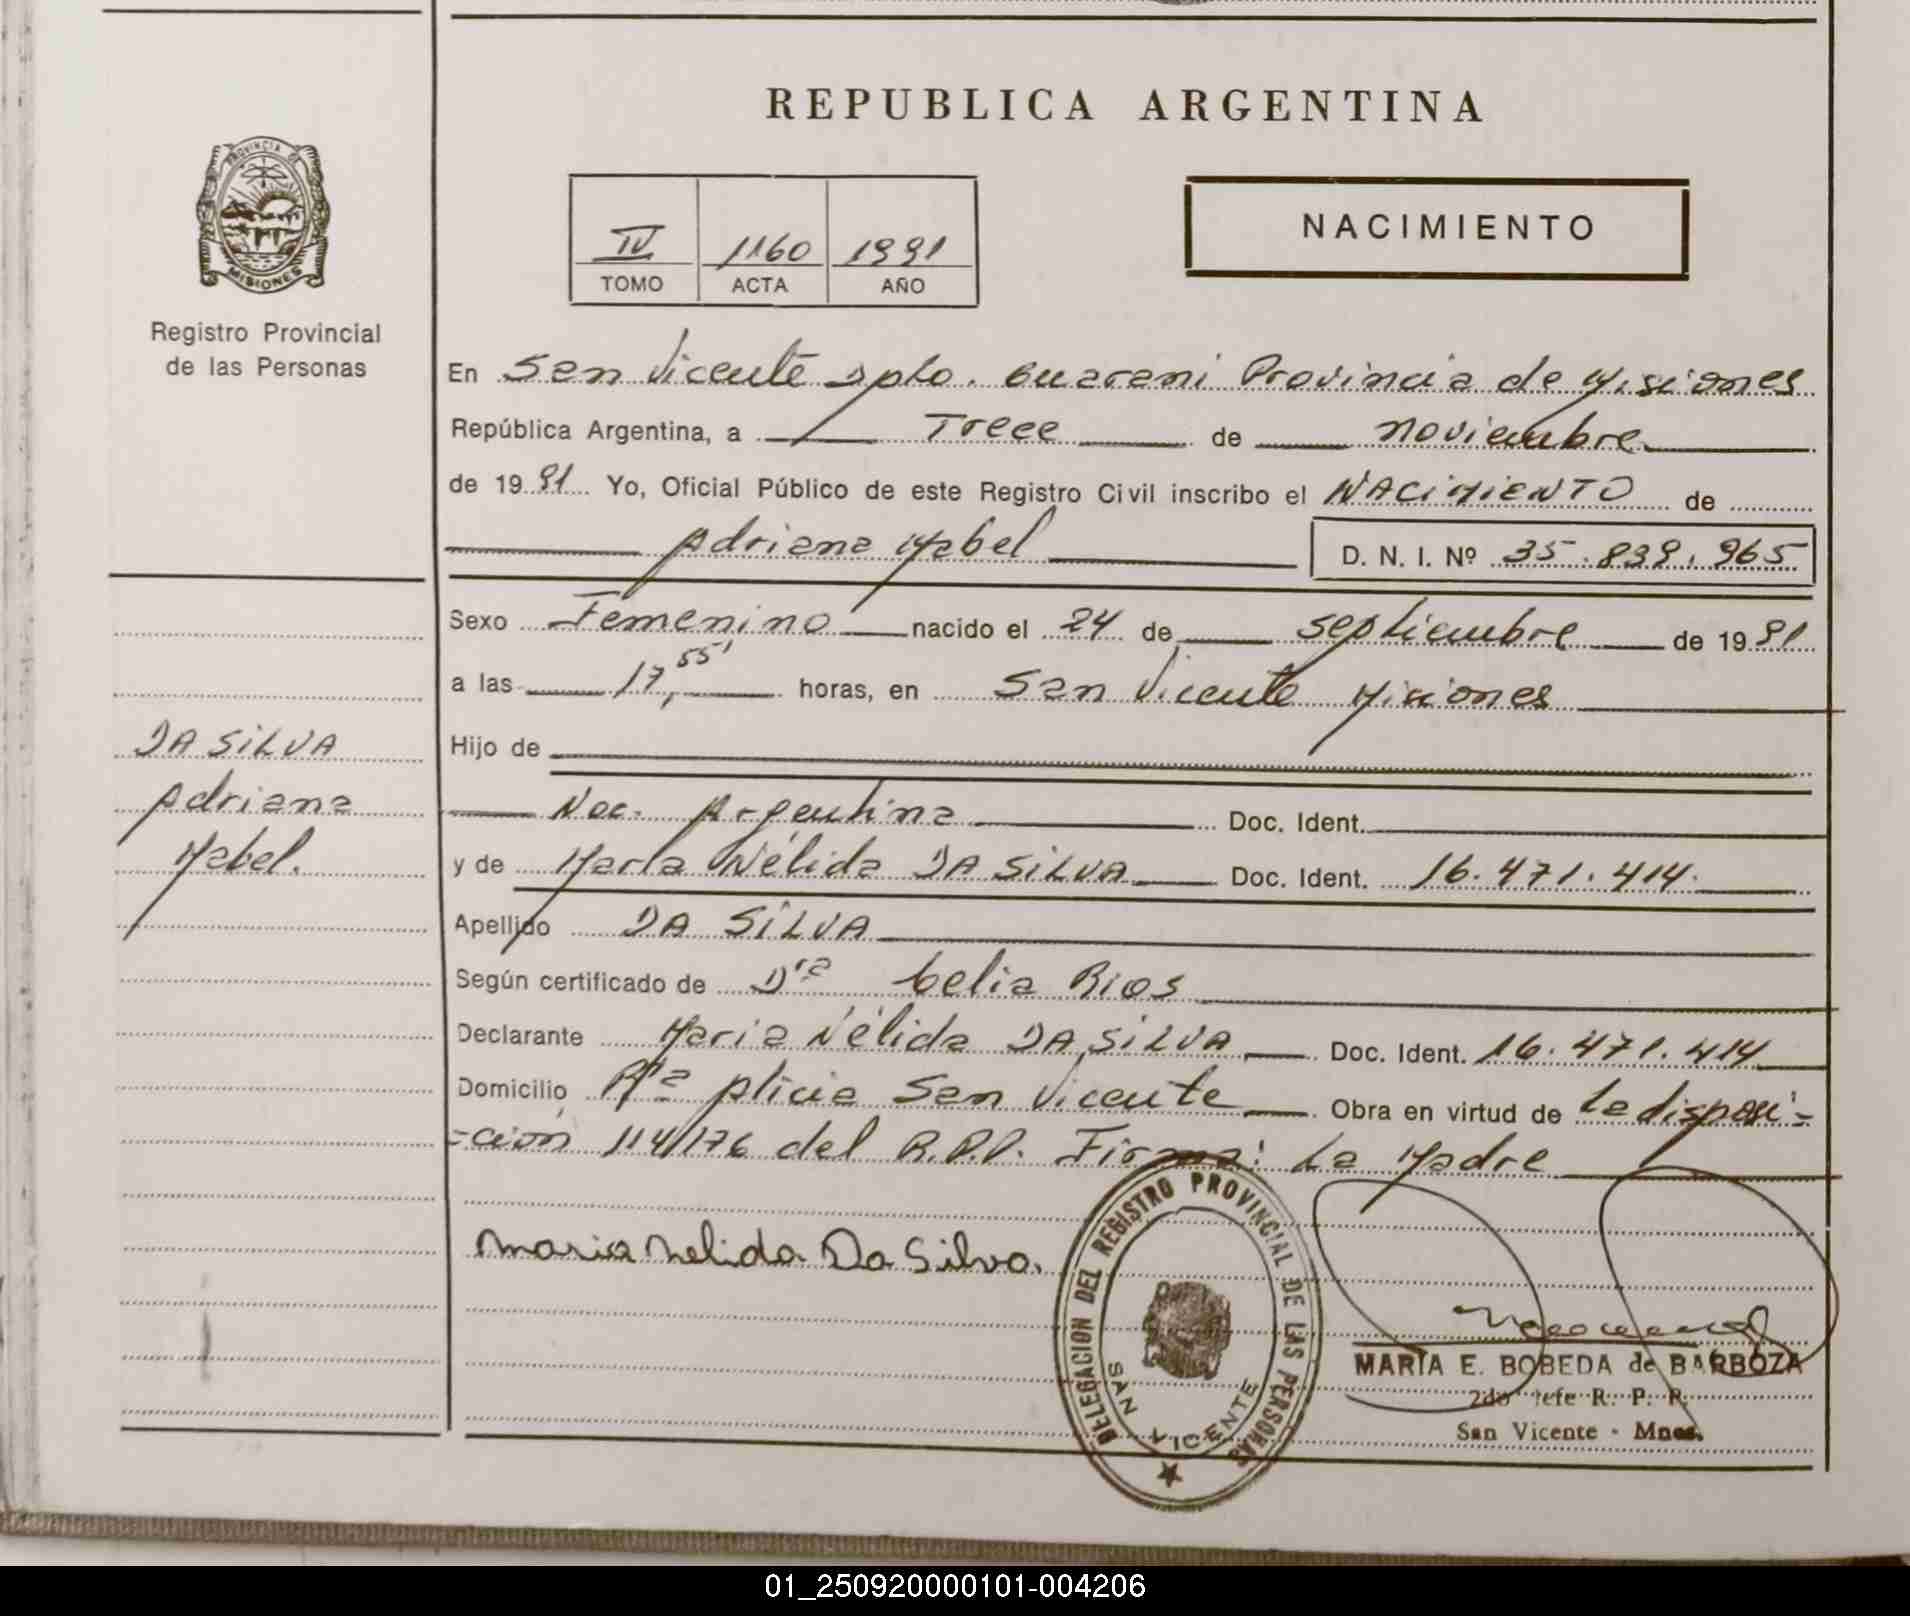 REPUBLICA ARGENTINA
PROVINCIA DE
MISIONES
Registro Provincial
de las Personas
IV 1160 1991
TOMO ACTA AÑO
NACIMIENTO
En San Vicente Dpto. Guarani Provincia de Misiones
República Argentina, a Trece de noviembre
de 1991 Yo, Oficial Público de este Registro Civil inscribo el NACIMIENTO de
Adriana Mabel D. N. I. Nº 35.839.965
Sexo Femenino nacido el 24 de septiembre de 1991
a las 17,55' horas, en San Vicente Misiones
Hijo de
Nac. Argentina Doc. Ident.
y de María Nélida DA SILVA Doc. Ident. 16.471.414.
Apellido DA SILVA
Según certificado de Dra Celia Rios
Declarante Maria Nélida DA SILVA Doc. Ident. 16.471.414
Domicilio San Vicente Obra en virtud de La disposi-
-ción 114/176 del R.P.P. Firma: La Madre
DA SILVA
Adriana
Mabel.
Maria Nelida Da Silva.
DELEGACION DEL REGISTRO PROVINCIAL DE LAS PERSONAS
SAN VICENTE
MARIA E. BOBEDA de BARBOZA
2do Jefe R. P. P.
San Vicente - Mnes.
01_250920000101-004206